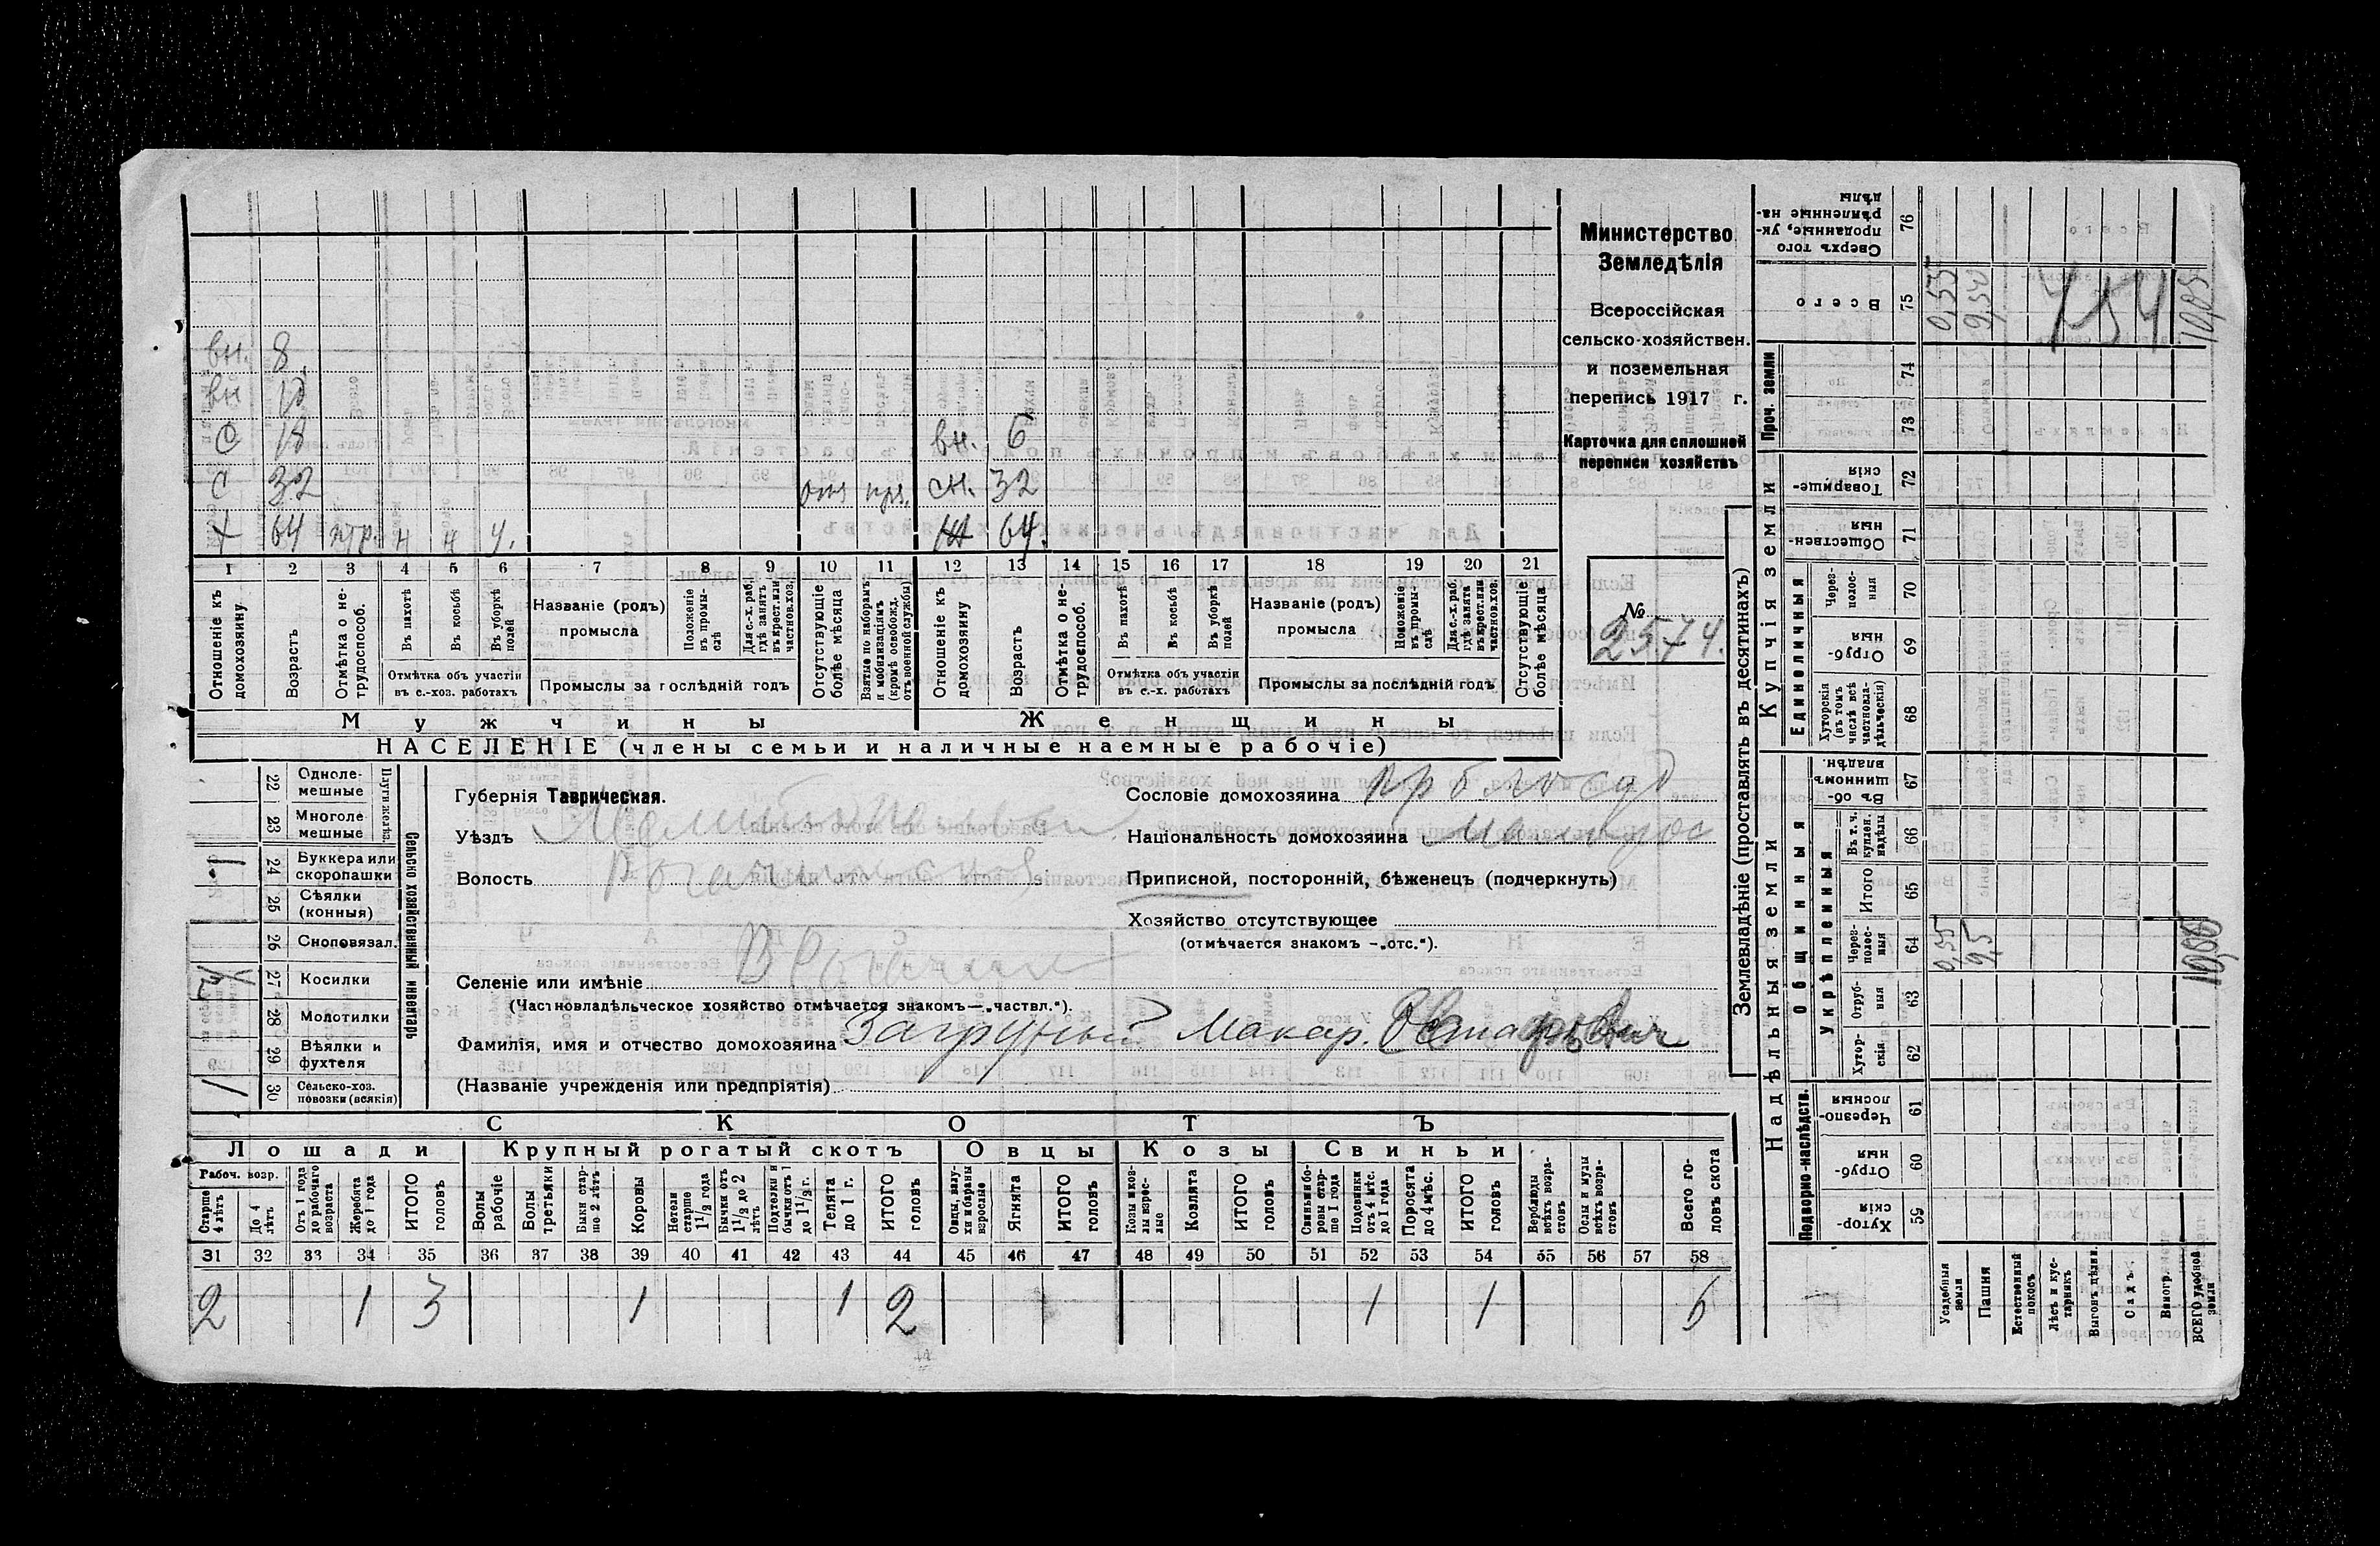 Министерство
Земледѣлія
Всероссійская
сельско-хозяйствен.
и поземельная
перепись 1917 г.
Карточка для сплошной
переписи хозяйствъ
№
2574.
вн. 8
вн 10
с 18 вн. 6
с 32 отс сн. 32
х 64 н н у. ж 64.
1 2 3 4 5 6 7 8 9 10 11 12 13 14 15 16 17 18 19 20 21
Отношеніе къ домохозяину.
Возрастъ
Отмѣтка о не-трудоспособ.
Въ пахотѣ
Въ косьбѣ
Въ уборкѣ полей
Отмѣтка объ участіи въ с.-хоз. работахъ
Названіе (родъ) промысла
Положеніе въ промы-слѣ
Для с.-х. раб. гдѣ занятъ въ крест. или частнов. хоз.
Промыслы за послѣдній годъ
Отсутствующіе болѣе мѣсяца
Взятые по наборамъ и мобилизаціямъ (кромѣ освобожд. отъ военной службы)
Отношеніе къ домохозяину
Возрастъ
Отмѣтка о не-трудоспособ.
Въ пахотѣ
Въ косьбѣ
Въ уборкѣ полей
Отмѣтка объ участіи въ с.-х. работахъ
Названіе (родъ) промысла
Положеніе въ промы-слѣ
Для с.-х. раб. гдѣ занята въ крест. или частнов. хоз.
Промыслы за послѣдній годъ
Отсутствующіе болѣе мѣсяца
Мужчины Женщины
НАСЕЛЕНІЕ (члены семьи и наличные наемные рабочіе)
Сельско хозяйственный инвентарь
22 Одноле-мешные
23 Многоле мешные
24 Буккера или скоропашки 1
25 Сѣялки (конныя)
26 Сноповязал.
27 Косилки
28 Молотилки
29 Вѣялки и фухтеля
30 Сельско-хоз. повозки (всякія) 1
Губернія Таврическая.
Уѣздъ Мелитоп
Волость Рогачинская
Селеніе или имѣніе В Рогачик
(Частновладѣльческое хозяйство отмѣчается знакомъ—„частвл.").
Фамилія, имя и отчество домохозяина Загрупный Макар.
(Названіе учрежденія или предпріятія)
Сословіе домохозяина
Національность домохозяина малорос
Приписной, посторонній, бѣженецъ (подчеркнуть)
Хозяйство отсутствующее
(отмѣчается знакомъ —„отс.").
СКОТЪ
Лошади Крупный рогатый скотъ Овцы Козы Свиньи
Рабоч. возр.
Старше 4 лѣтъ
До 4 лѣтъ
Отъ 1 года до рабочаго возраста
Жеребята до 1 года
ИТОГО головъ
Волы рабочіе
Волы третьяки
Быки стар-ше 2 лѣтъ
Коровы
Нетели старше 1 1/2 года
Бычки отъ 1 1/2 до 2 лѣтъ
Подтелки и бычки отъ 1 до 1 1/2 г.
Телята до 1 г.
ИТОГО головъ
Овцы, валу-хи и бараны взрослые
Ягнята
ИТОГО головъ
Козы и коз-лы взрос-лые
Козлята
ИТОГО головъ
Свиньи и бо-ровы стар-ше 1 года
Подсвинки отъ 4 мѣс. до 1 года
Поросята до 4 мѣс.
ИТОГО головъ
Верблюды всѣхъ возра-стовъ
Ослы и мулы всѣхъ возра-стовъ
Всего го-ловъ скота
31 32 33 34 35 36 37 38 39 40 41 42 43 44 45 46 47 48 49 50 51 52 53 54 55 56 57 58
2 1 3 1 1 2 1 1 6
Землевладѣніе (проставлять въ десятинахъ)
Надѣльныя земли
Купчія земли
Проч. земли
Подворно-наслѣдств.
Общинныя
Укрѣпленныя
Единоличныя
59 Хутор-скія
60 Отруб-ныя
61 Черезпо-лосныя
62 Хутор-скія
63 Отруб-ныя
64 Через-полос-ныя 0,55 9,5
65 Итого
66 Въ т. ч. куплен. надѣлы
67 Въ об-щинномъ владѣн.
68 Хуторскія (въ томъ числѣ всѣ частновла-дѣльческія)
69 Отруб-ныя
70 Через-полос-ныя
71 Обществен-ныя
72 Товарище-скія
73
74
75 Всего 0,55 9,50 154 10,05
76 Сверхъ того проданные, ук-рѣпленные на-дѣлы
Усадебныя земли
Пашня
Естественный покосъ
Лѣсъ и кус-тарникъ
Выгонъ, цѣлин.
Садъ
Виногр.
ВСЕГО удобной земли